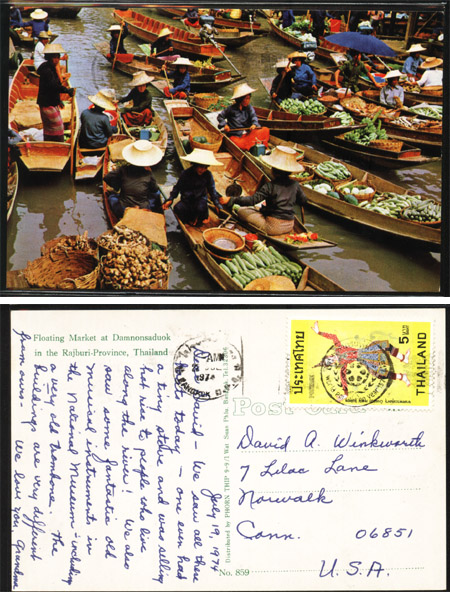 Floating Market at Damnonsaduok
in the Rajburi-Province, Thailand
July 19, 1974
David - We saw all these
boats today - one even had
a tiny stove and was selling
hot rice to people who live
along the river! We also
saw some fantastic old
musical instruments in
the National Museum - including
a very old trombone. The
buildings are very different
from ours - We love you, Grandma
Distributed by PHORN THIP
No. 859
POST CARD
ประเทศไทย
5
BAHT
THAILAND
BANGKOK
1974
David A. Winkworth
7 Lilac Lane
Norwalk
Conn. 06851
U.S.A.